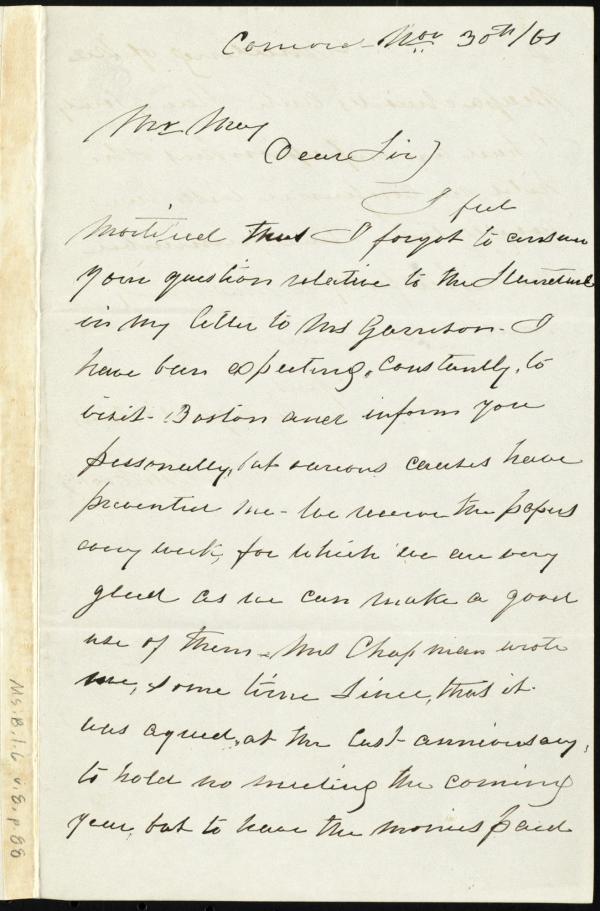 Concord Nov 30th/61
Mr May
Dear Sir)
I feel
mortified that I forgot to answer
your question relative to the
in my letter to Mrs Garrison - I
have been expecting, constantly, to
visit - Boston and inform you
personally, but various causes have
prevented me - We receive the papers
every week, for which we are very
glad as we can make a good
use of them - Mrs Chapman wrote
me, some time since, that it
was agreed, at the last anniversary,
to hold no meeting the coming
year, but to have the monies paid
Ms.B.1.6 v.8, p.88